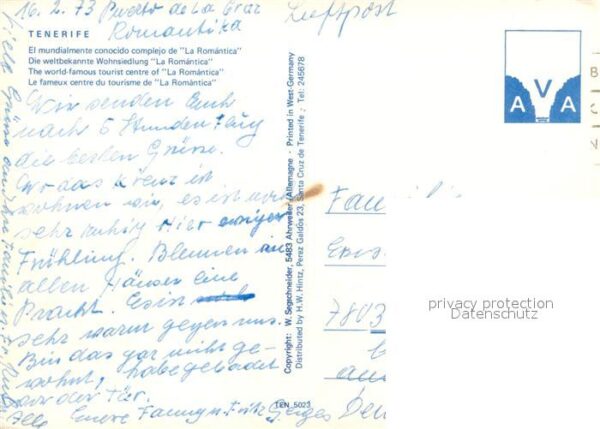 16. 2. 73 Puerto de La Cruz
Romantika
Luftpost
TENERIFE
El mundialmente conocido complejo de "La Romántica"
Die weltbekannte Wohnsiedlung "La Romántica"
The world-famous tourist centre of "La Romántica"
Le fameux centre du tourisme de "La Romántica"
Wir senden Euch
nach 5 Stunden Flug
die besten Grüsse.
Wo das Kreuz ist
wohnen wir, es ist
sehr ruhig Hier ewiger
Frühling. Blumen an
allen Häuser Eine
Pracht. Es ist
sehr warm gegen uns.
Bin das gar nicht ge-
wohnt, habe gebadet
vor der Tür.
Alle Eure Fanny u. Fritz
viele Grüsse an
Copyright: W. Segschneider, 5483 Ahrweiler/Allemagne - Printed in West-Germany
Distributed by H.W. Hintz, Perez Galdós 23, Santa Cruz de Tenerife, Tel: 245678
TEN 5023
AVA
Fam
7803
privacy protection
Datenschutz